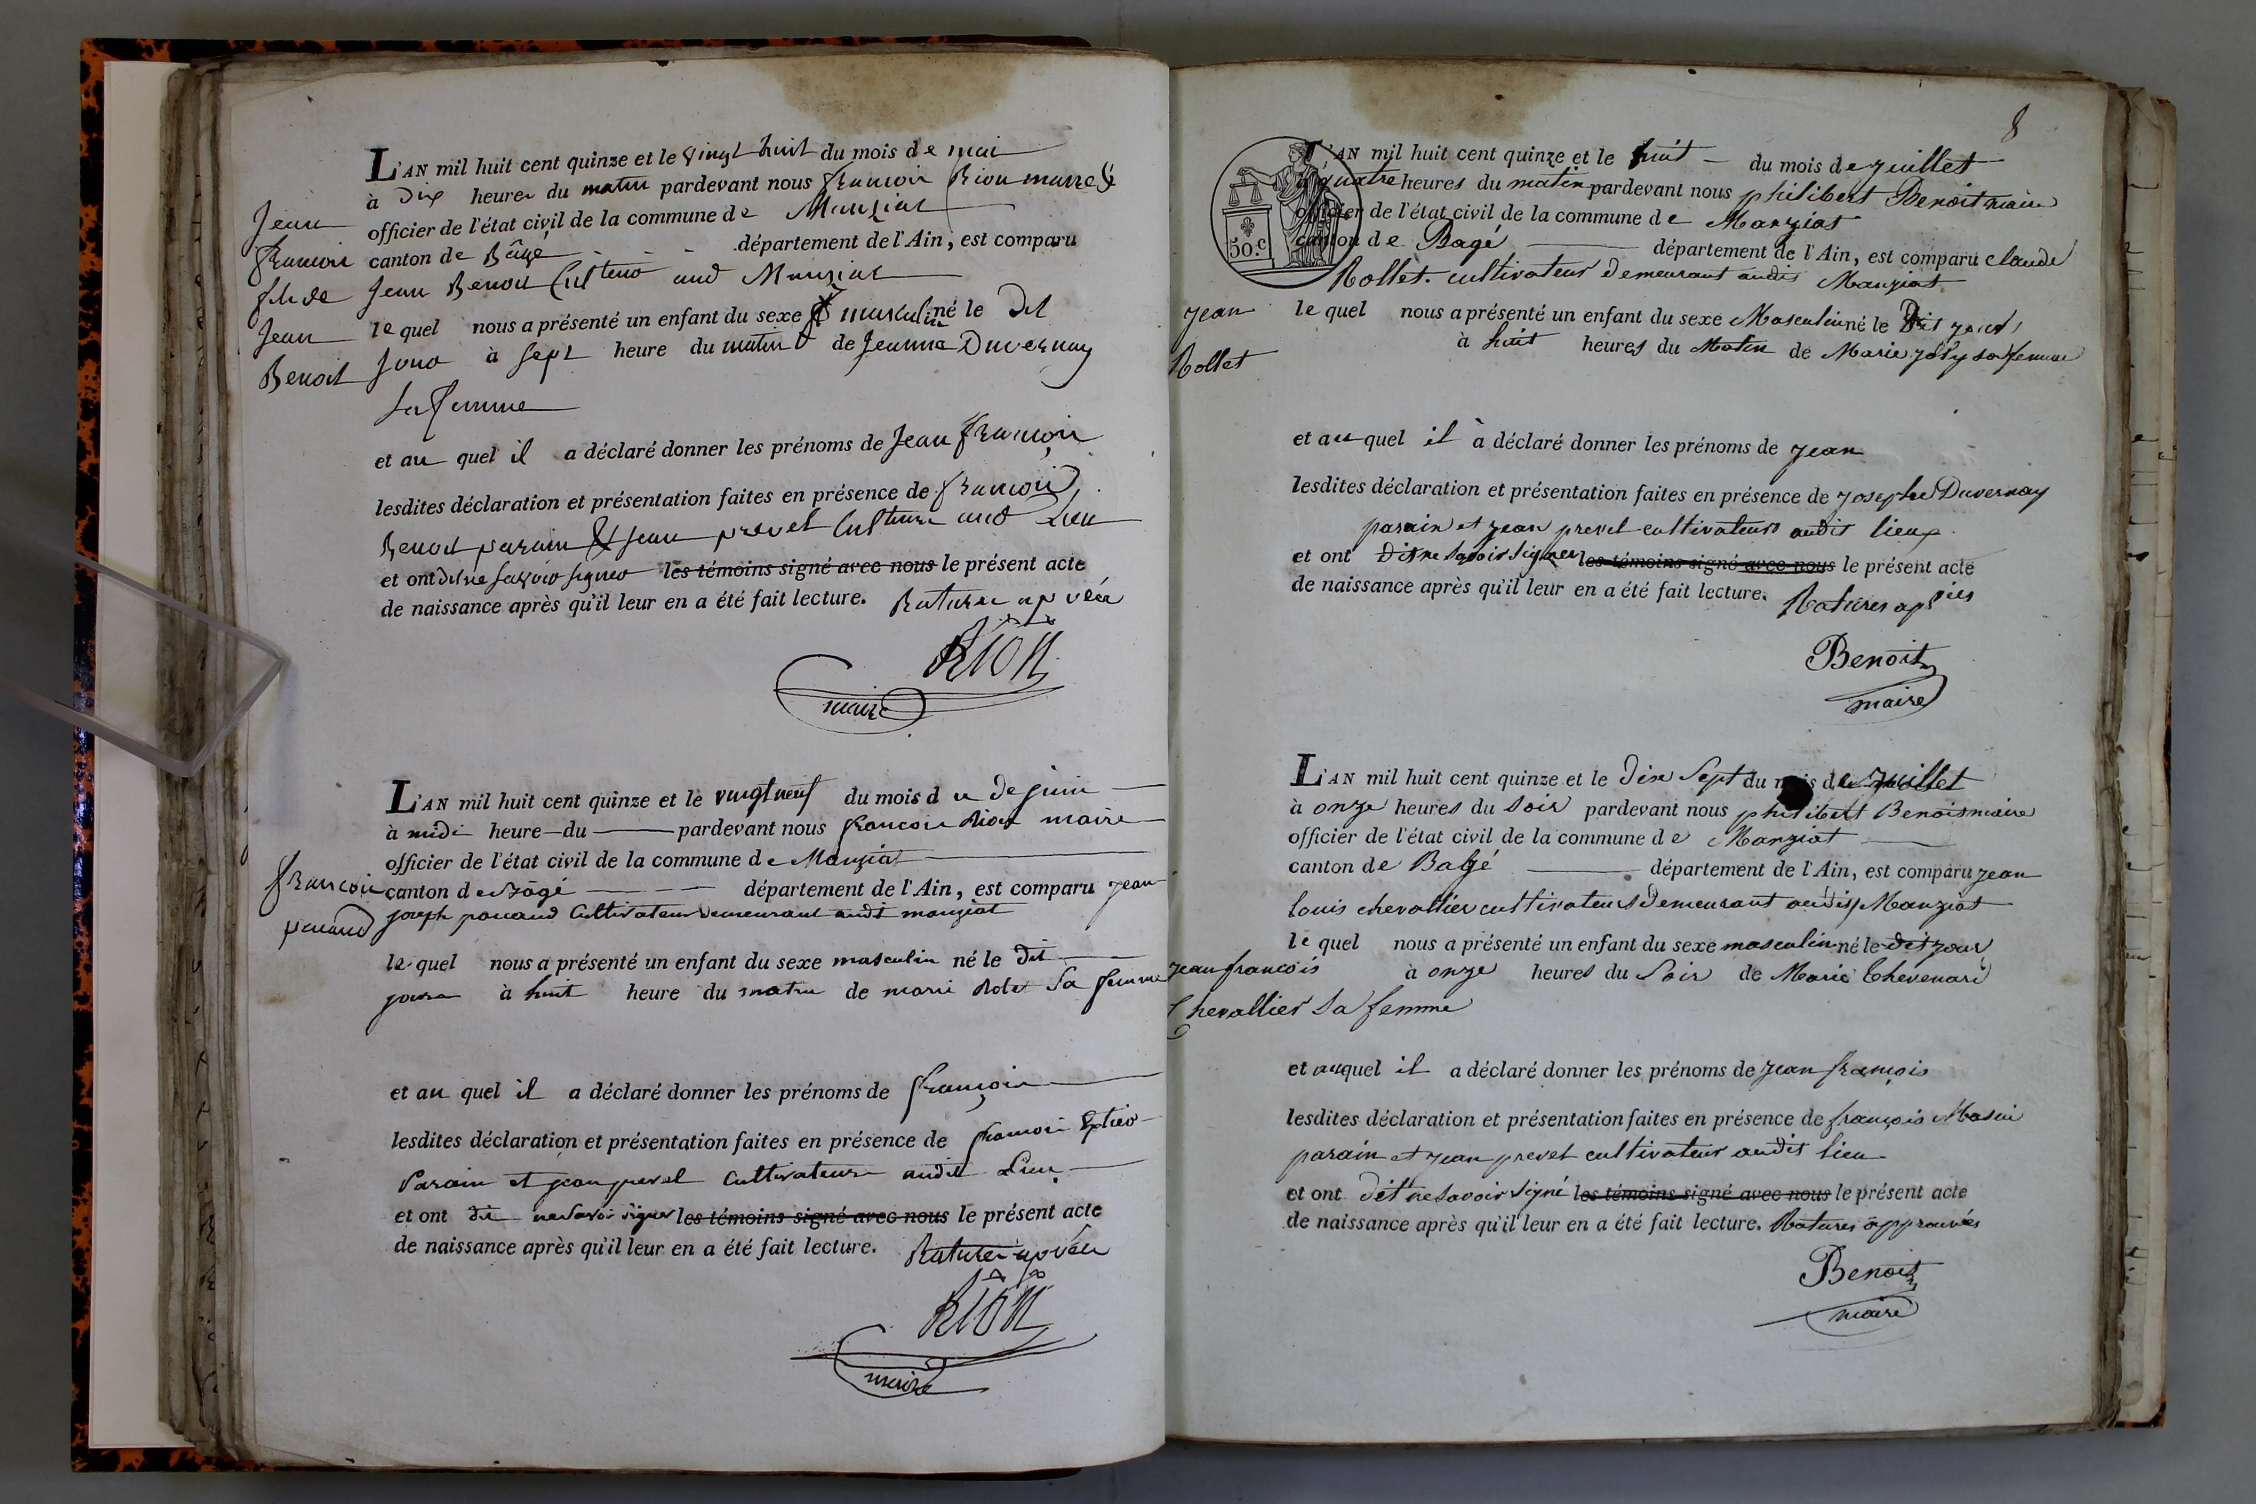 L'AN mil huit cent quinze et le vingt huit du mois de mai
à Dix heures du matin pardevant nous françois Rion maire &
officier de l'état civil de la commune de Manziat
canton de Bâgé département de l'Ain, est comparu
Jean Benoit Cultiv aud Manziat
Jean
françois
fils de
Jean
Benoit
le quel nous a présenté un enfant du sexe masculin né le Dit
Jour à Sept heure du matin de Jeanne Duvernay
Sa femme
et au quel il a déclaré donner les prénoms de Jean françois
lesdites déclaration et présentation faites en présence de françois
Benoit parain & Jean prevel Cultiv aud Lieu
et ont dit ne savoir signer les témoins signé avec nous le présent acte
de naissance après qu'il leur en a été fait lecture. Ratures apvées
Rion
maire
L'AN mil huit cent quinze et le vingt neuf du mois d e de juin
à midi heure du pardevant nous françois Rion maire
officier de l'état civil de la commune de Manziat
canton de Bâgé département de l'Ain, est comparu jean
joseph pauaud Cultivateur demeurant audit manziat
françois
pauaud
le quel nous a présenté un enfant du sexe masculin né le dit
jour à huit heure du matin de marie Rolet Sa femme
et au quel il a déclaré donner les prénoms de françois
lesdites déclaration et présentation faites en présence de françois
Parain et jean prevel Cultivateurs audit Lieu
et ont dit ne savoir signer les témoins signé avec nous le présent acte
de naissance après qu'il leur en a été fait lecture. Ratures apvées
Rion
maire
8
L'AN mil huit cent quinze et le huit du mois de juillet
à quatre heures du matin pardevant nous philibert Benoit maire
officier de l'état civil de la commune de Manziat
canton de Bagé département de l'Ain, est comparu claude
Rollet cultivateur demeurant audit Manziat
50.c
jean
Rollet
le quel nous a présenté un enfant du sexe Masculin né le Dit jour
à huit heures du Matin de Marie joly sa femme
et au quel il à déclaré donner les prénoms de jean
lesdites déclaration et présentation faites en présence de joseph Duvernay
parain et jean prevel cultivateurs audit lieux
et ont dit ne savoir signer les témoins signé avec nous le présent acte
de naissance après qu'il leur en a été fait lecture. Ratures apvées
Benoit
maire
L'AN mil huit cent quinze et le Dix Sept du mois de juillet
à onze heures du soir pardevant nous philibert Benoit maire
officier de l'état civil de la commune de Manziat
canton de Bagé département de l'Ain, est comparu jean
louis chevallier cultivateur demeurant audit Manziat
le quel nous a présenté un enfant du sexe masculin né le dit jour
jean francois à onze heures du Soir de Marie Chevenard
Chevallier sa femme
et auquel il a déclaré donner les prénoms de jean françois
lesdites déclaration et présentation faites en présence de françois Masui
parain et jean prevel cultivateur audit lieu
et ont dit ne savoir signé les témoins signé avec nous le présent acte
de naissance après qu'il leur en a été fait lecture. Ratures approuvées
Benoit
maire